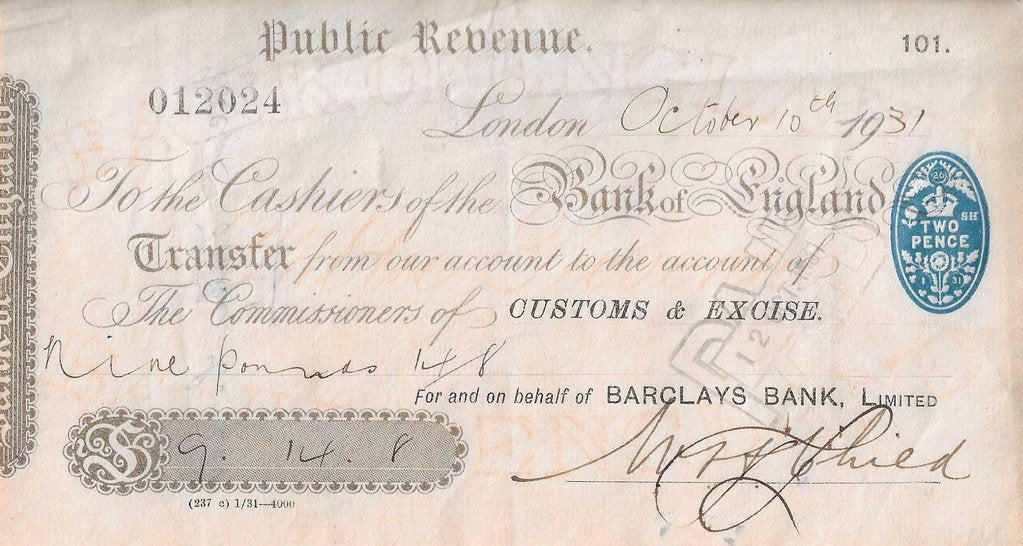 Public Revenue.
101.
012024
London October 10th 1931
To the Cashiers of the Bank of England
Transfer from our account to the account of
The Commissioners of CUSTOMS & EXCISE.
Nine pounds 14/8
For and on behalf of BARCLAYS BANK, LIMITED
£ 9. 14. 8
(237 c) 1/31—4000
26
SH
TWO
PENCE
1 31
Bank of England